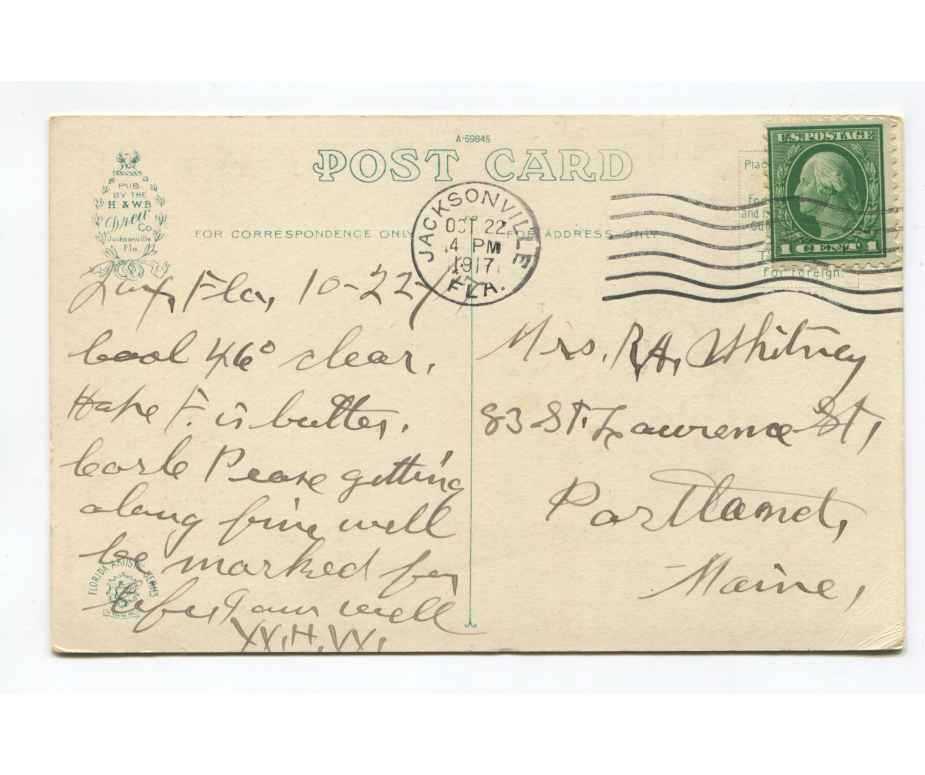 A-59845
POST CARD
PUB.
BY THE
H & WB
Drew
Co.
Jacksonville
Fla.
FOR CORRESPONDENCE ONLY
FOR ADDRESS ONLY
JACKSONVILLE
OCT 22
4 PM
1917
FLA.
U.S. POSTAGE
1 CENT 1
Plac
and
For Foreign.
Fla, 10-22/17
Cool 46° clear.
Hope F. is better.
Pease getting
along fine will
be marked for
life, I am well
W.H.W.
Mrs. R.H. Whitney
83 St. Lawrence St,
Portland,
Maine,
FLORIDA ARTISTIC